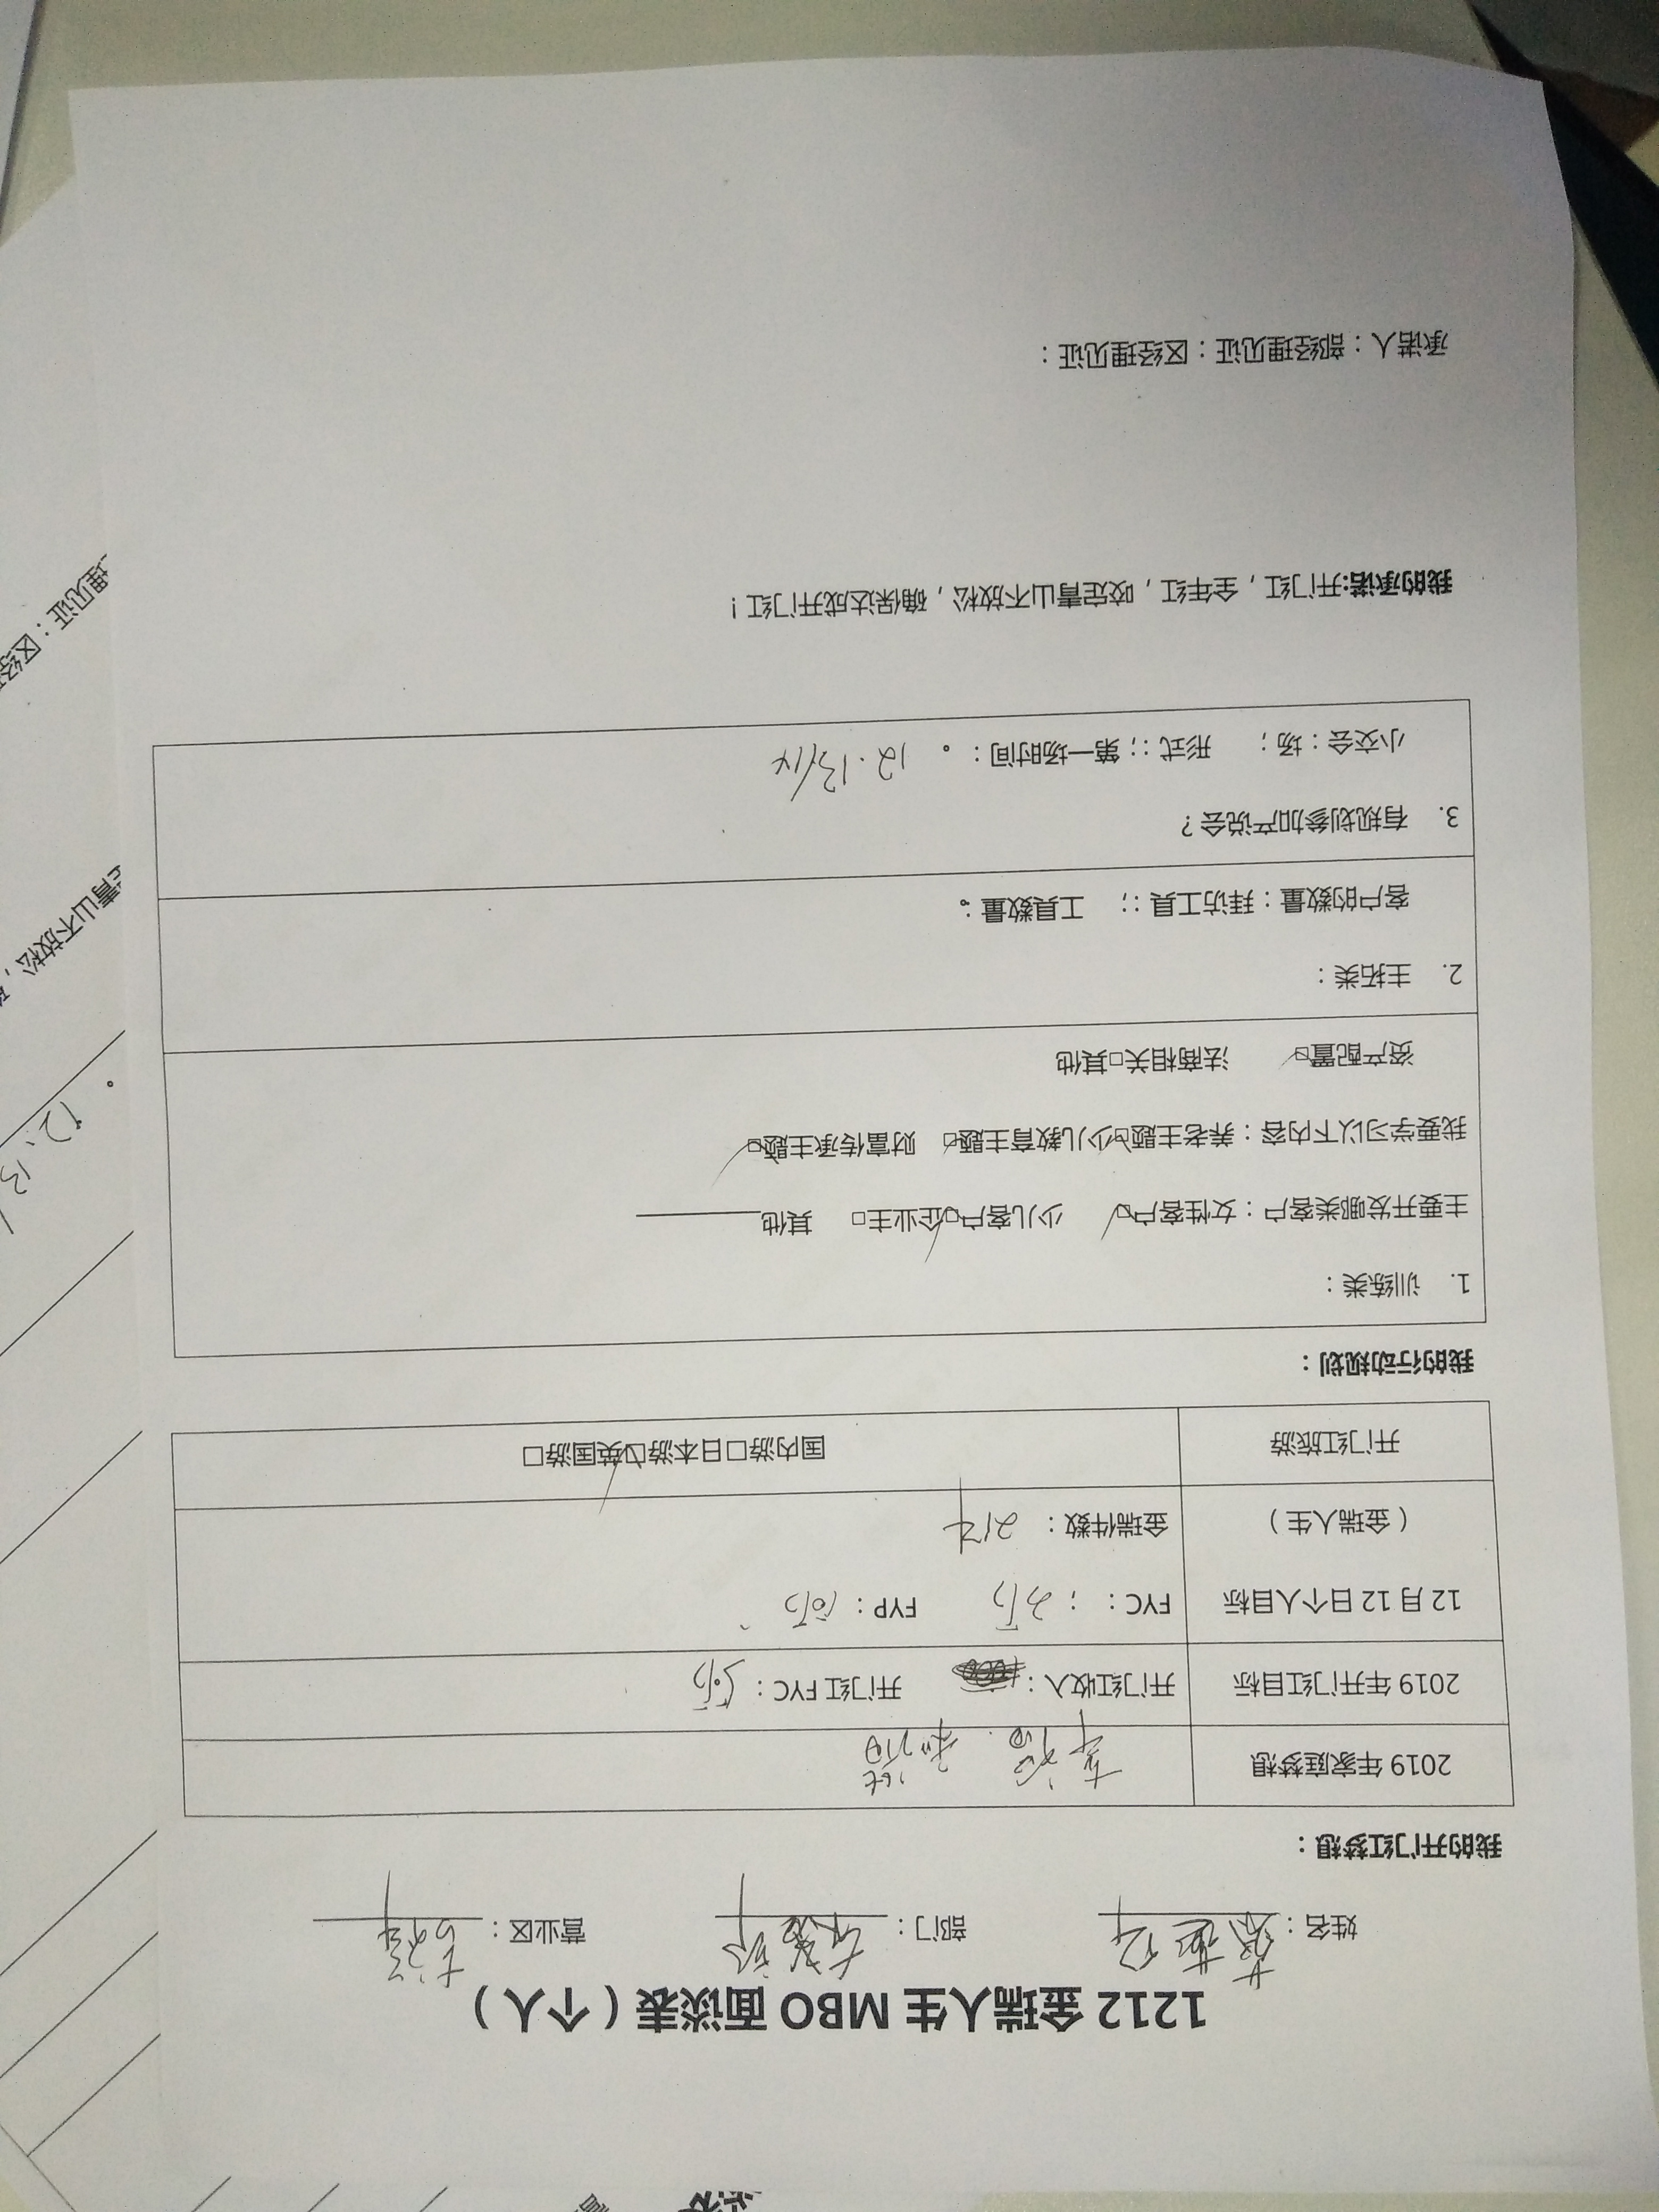 1212 金瑞人生 MBO 面谈表（个人）
姓名： 部门： 营业区：
我的开门红梦想：
2019 年家庭梦想 幸福.
2019 年开门红目标 开门红收入： 开门红 FYC：5万
12 月 12 日个人目标 FYC：；2万 FYP：10万
（金瑞人生） 金瑞件数：2件
开门红旅游 国内游□日本游□英国游□
我的行动规划：
1. 训练类：
主要开发哪类客户：女性客户□ 少儿客户□企业主□ 其他
我要学习以下内容：养老主题□少儿教育主题□ 财富传承主题□
资产配置□ 法商相关□其他
2. 主拓类：
客户的数量：拜访工具：; 工具数量：。
3. 有规划参加产说会？
小交会：场； 形式：; 第一场时间：。 12.13/14
我的承诺:开门红，全年红，咬定青山不放松，确保达成开门红！
承诺人：部经理见证：区经理见证：
理见证：区经
青山不放松，
12.13